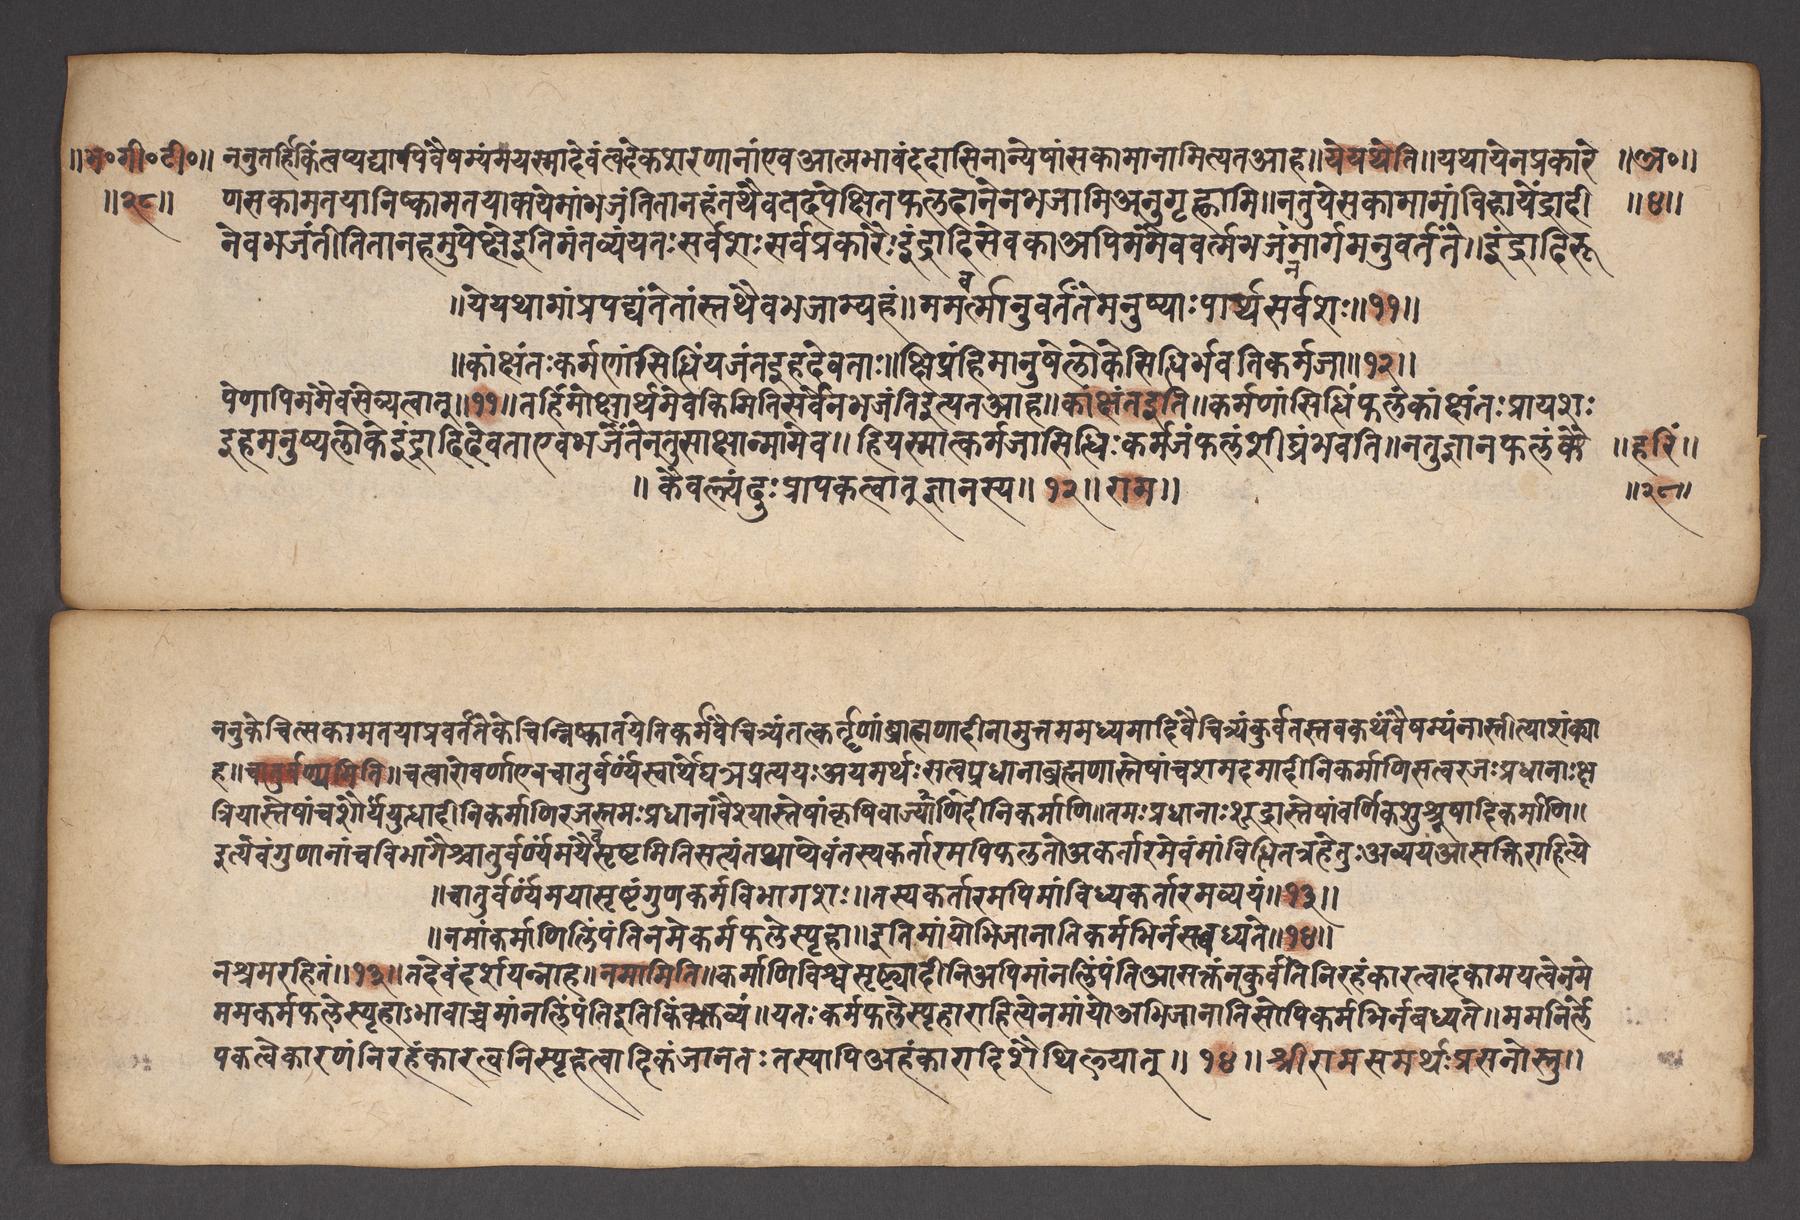 ॥भ॰गी॰टी॰॥ ननुतर्हिकिंत्वय्यद्यापिवैषम्यंमयस्मादेवंत्वदेकशरणानांएवआत्मभावंददासिनान्येषांसकामानामित्यतआह॥येयथेति॥यथायेनप्रकारे ॥अ॰॥
॥२८॥ णसकामतयानिष्कामतयावायेमांभजंतितानहंतथैवतदपेक्षितफलदानेनभजामिअनुगृह्णामि॥नतुयेसकामामांविहायेंद्रादी ॥४॥
नेवभजंतीतितानहमुपेक्षेइतिमंतव्यंयतःसर्वशःसर्वप्रकारैःइंद्रादिसेवकाअपिममैववर्त्मभजनमार्गमनुवर्तंते॥इंद्रादिरू
॥येयथामांप्रपद्यंतेतांस्तथैवभजाम्यहं॥ममवर्त्मानुवर्तंतेमनुष्याःपार्थसर्वशः॥११॥
॥कांक्षंतःकर्मणांसिद्धिंयजंतइहदेवताः॥क्षिप्रंहिमानुषेलोकेसिद्धिर्भवतिकर्मजा॥१२॥
पेणापिममैवसेव्यत्वात्॥११॥तर्हिमोक्षार्थमेवकिमितिसर्वेनभजंतिइत्यतआह॥कांक्षंतइति॥कर्मणांसिद्धिंफलंकांक्षंतःप्रायशः
इहमनुष्यलोकेइंद्रादिदेवताएवभजंतेनतुसाक्षान्मामेव॥हियस्मात्कर्मजासिद्धिःकर्मजंफलंशीघ्रंभवति॥नतुज्ञानफलंकै ॥हरिं॥
॥कैवल्यंदुःप्रापकत्वात्ज्ञानस्य॥१२॥राम॥ ॥२८॥
ननुकेचित्सकामतयाप्रवर्तंतेकेचिन्निष्कातंयेतिकर्मवैचित्र्यंतत्कर्तॄणांब्राह्मणादीनामुत्तममध्यमादिवैचित्र्यंकुर्वतस्तवकथंवैषम्यंनास्तीत्याशंक्या
ह॥चातुर्वर्ण्यमिति॥चत्वारोवर्णाएवचातुर्वर्ण्यंस्वार्थेष्यञप्रत्ययःअयमर्थःसत्वप्रधानाब्रह्मणास्तेषांचशमदमादीनिकर्माणिसत्वरजःप्रधानाःक्ष
त्रियास्तेषांचशौर्ययुद्धादीनिकर्माणिरजस्तमःप्रधानांवैश्यास्तेषांकृषिवाज्यांणिदीनिकर्माणि॥तमःप्रधानाःशूद्रास्तेषांवर्णिकशुश्रूषादिकर्माणि॥
इत्येवंगुणानांचविभागैश्चातुर्वर्ण्यंमयैवसृष्टमितिसत्यंतथाप्येवंतस्यकर्तारमपिफलतोअकर्तारमेवंमांविद्धितत्रहेतुःअव्ययंआसक्तिराहित्ये
॥चातुर्वर्ण्यंमयासृष्टंगुणकर्मविभागशः॥तस्यकर्तारमपिमांविध्यकर्तारमव्ययं॥१३॥
॥नमांकर्माणिलिंपंतिनमेकर्मफलेस्पृहा॥इतिमांयोभिजानातिकर्मभिर्नसबध्यते॥१४॥
नश्रमरहितं॥१३॥तदेवंदर्शयन्नाह॥नमामिति॥कर्माणिविश्वसृष्ट्यादीनिअपिमांनलिंपंतिआसक्तंनकुर्वंतिनिरहंकारत्वादकामयत्वेनमे
ममकर्मफलेस्पृहाऽभावाच्चमांनलिंपंतिइतिकिंवक्तव्यं॥यतःकर्मफलेस्पृहाराहित्येनमांयोअभिजानातिसोपिकर्मभिर्नबध्यते॥ममनिर्ले
पकत्वेकारणंनिरहंकारत्वनिस्पृहत्वादिकंजानतःतस्यापिअहंकारादिशैथिल्यात्॥१४॥श्रीरामसमर्थःप्रसनोस्तु॥